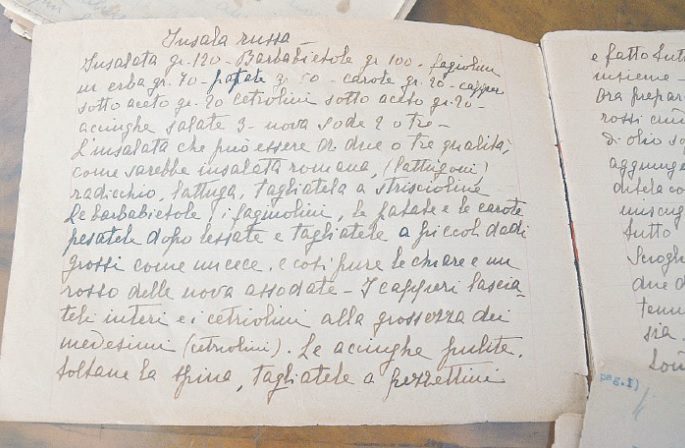 Insala russa -
Insalata gr. 120 - Barbabietole gr 100 - fagiolini
in erba gr. 70 - patate gr 50 - carote gr. 20 - capperi
sotto aceto gr. 20 cetrolini sotto aceto gr. 20 -
acciughe salate 3 - uova sode 2 o tre -
L'insalata che può essere di due o tre qualità,
come sarebbe insalata romana, (lattugoni)
radicchio, lattuga, tagliatela a striscioline
Le barbabietole, i fagiuolini, le patate e le carote
pesatele dopo lessate e tagliatele a piccoli dadi
grossi come un cece, e così pure le chiare e un
rosso delle uova assodate - I capperi lascia-
teli interi e i cetriolini alla grossezza dei
medesimi (citriolini). Le acciughe pulite,
toltane la spina, tagliatele a pezzettini
e fatto tutto
insieme -
Ora prepar
rossi cru
di olio so
aggiunge
tutto
due d
sia.
pag. 1)